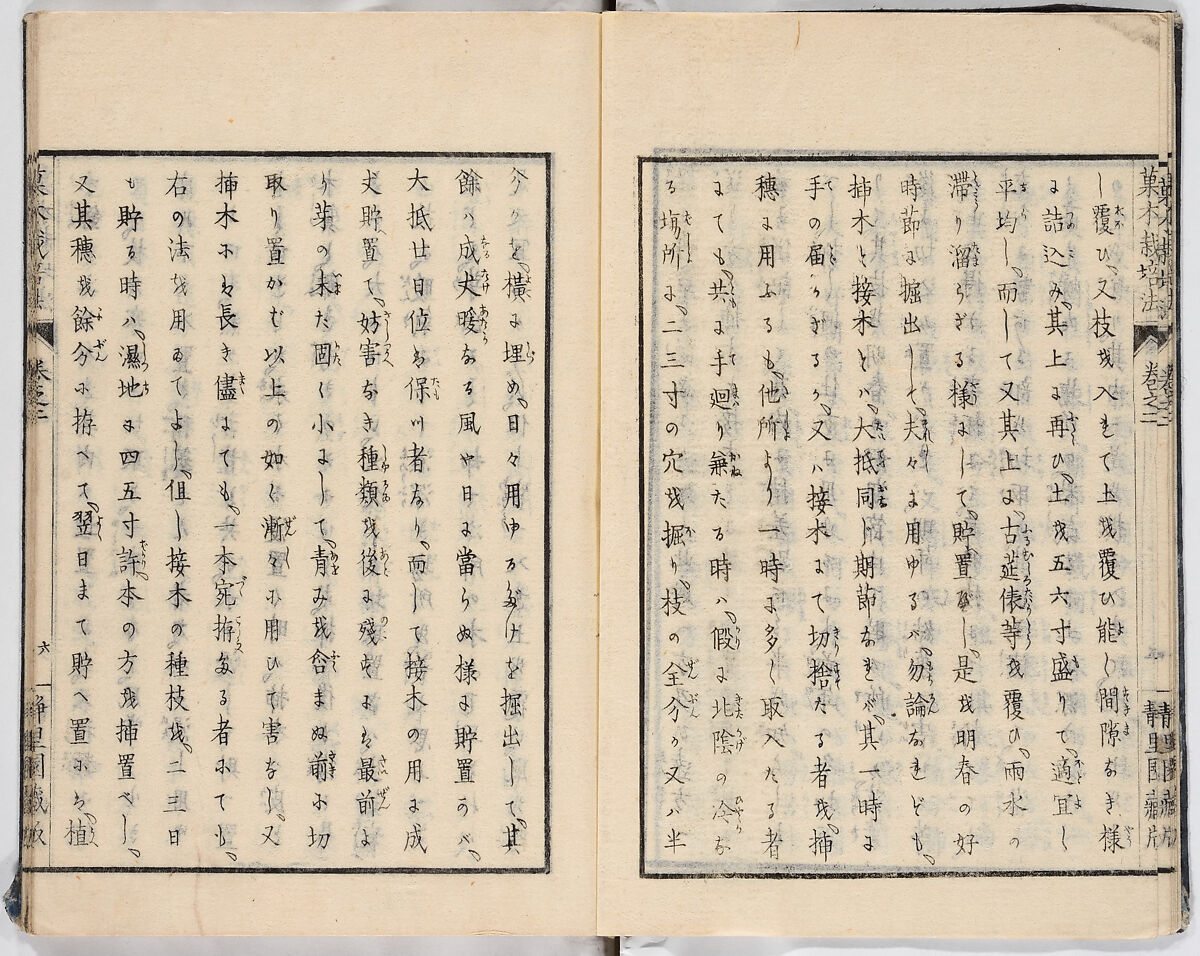 菓木栽培法
卷之二
靜里園藏版
し覆ひ、又枝を入れて土を覆ひ能し間隙なき様
に詰込み、其上に再ひ、土を五六寸盛りて、適宜し
平均し、而して又其上に、古莚俵等を覆ひ、雨水の
滯り溜らざる様にして、貯置べし、是を明春の好
時節に掘出して、夫々に用ゆるハ、勿論なれども、
挿木と接木とハ、大抵同じ期節なれバ、其一時に
手の届かざるか、又ハ接木にて切捨たる者を、挿
穗に用ふるも、他所より一時に多く取入たる者
にても、共に手廻り兼たる時ハ、假に北陰の冷な
る塲所に、二三寸の穴を掘り、枝の全分か又ハ半
分かを、横に埋め、日々用ゆるだけを掘出して、其
餘ハ成丈暖なる風や日に當らぬ様に貯置のバ、
大抵廿日位は保つ者なり、而して接木の用に成
丈貯へ置て、妨害なき種類を後に殘すには最前よ
り芽の未た固く小にして、青み を含まぬ前に切
取り置かむ以上の如く漸々に用ひて害なし、又
挿木には長き儘にても、一本宛拵たる者にても、
右の法を用ゐてよし、但し接木の種枝を、二三日
も貯る時ハ、濕地に四五寸許本の方を挿置べし、
又其穗を餘分に拵へて、翌日まて貯へ置には、植
菓木栽培法
卷之二
六
靜里園藏版